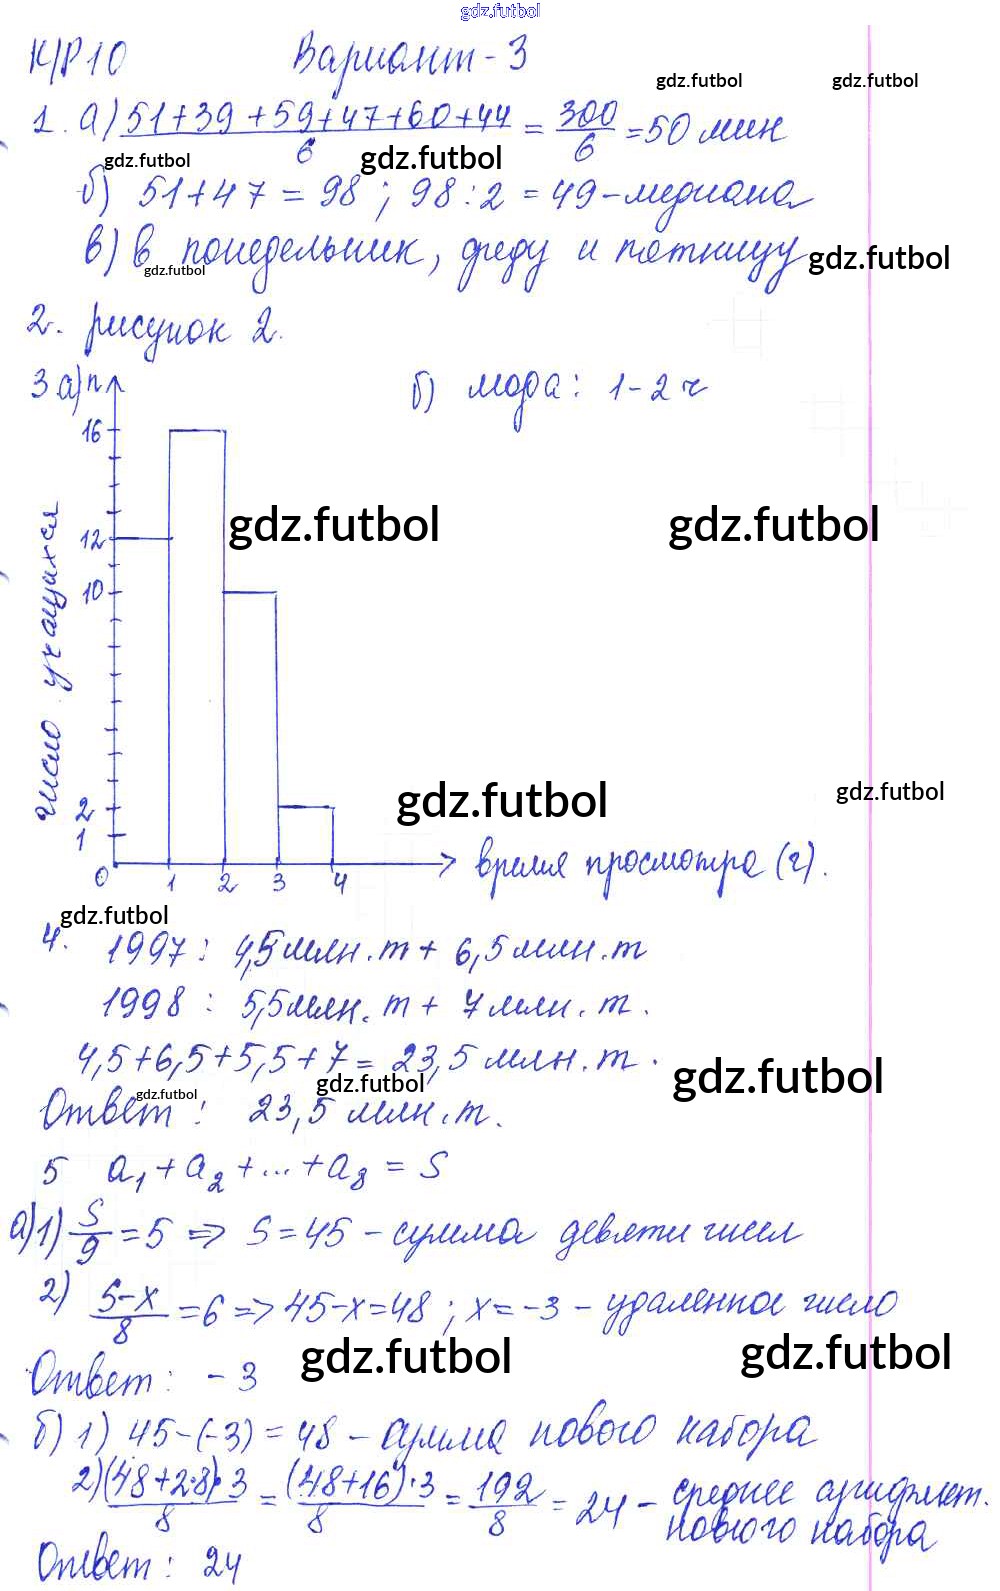 gdz.futbol
К/Р 10 Вариант - 3
gdz.futbol gdz.futbol
1. а) (51+39+59+47+60+44)/6 = 300/6 = 50 мин
gdz.futbol gdz.futbol
б) 51+47 = 98 ; 98:2 = 49 - медиана
в) в понедельник, среду и пятницу
gdz.futbol gdz.futbol
2. рисунок 2.
3 а) n б) мода: 1-2 ч
16
gdz.futbol gdz.futbol
12
10
число учащихся
gdz.futbol gdz.futbol
2
1
0 1 2 3 4 время просмотра (ч).
gdz.futbol
4. 1997 : 4,5 млн.т + 6,5 млн.т
1998 : 5,5 млн. т + 7 млн. т.
4,5+6,5+5,5+7 = 23,5 млн.т.
gdz.futbol gdz.futbol gdz.futbol
Ответ: 23,5 млн.т.
5 a₁+a₂+...+a₈ = S
а) 1) S/9 = 5 => S = 45 - сумма девяти чисел
2) (S-x)/8 = 6 => 45-x=48 ; x= -3 - удаленное число
gdz.futbol gdz.futbol
Ответ: -3
б) 1) 45-(-3) = 48 - сумма нового набора
2) (48+2·8)·3/8 = (48+16)·3/8 = 192/8 = 24 - среднее арифмет.
нового набора
Ответ: 24